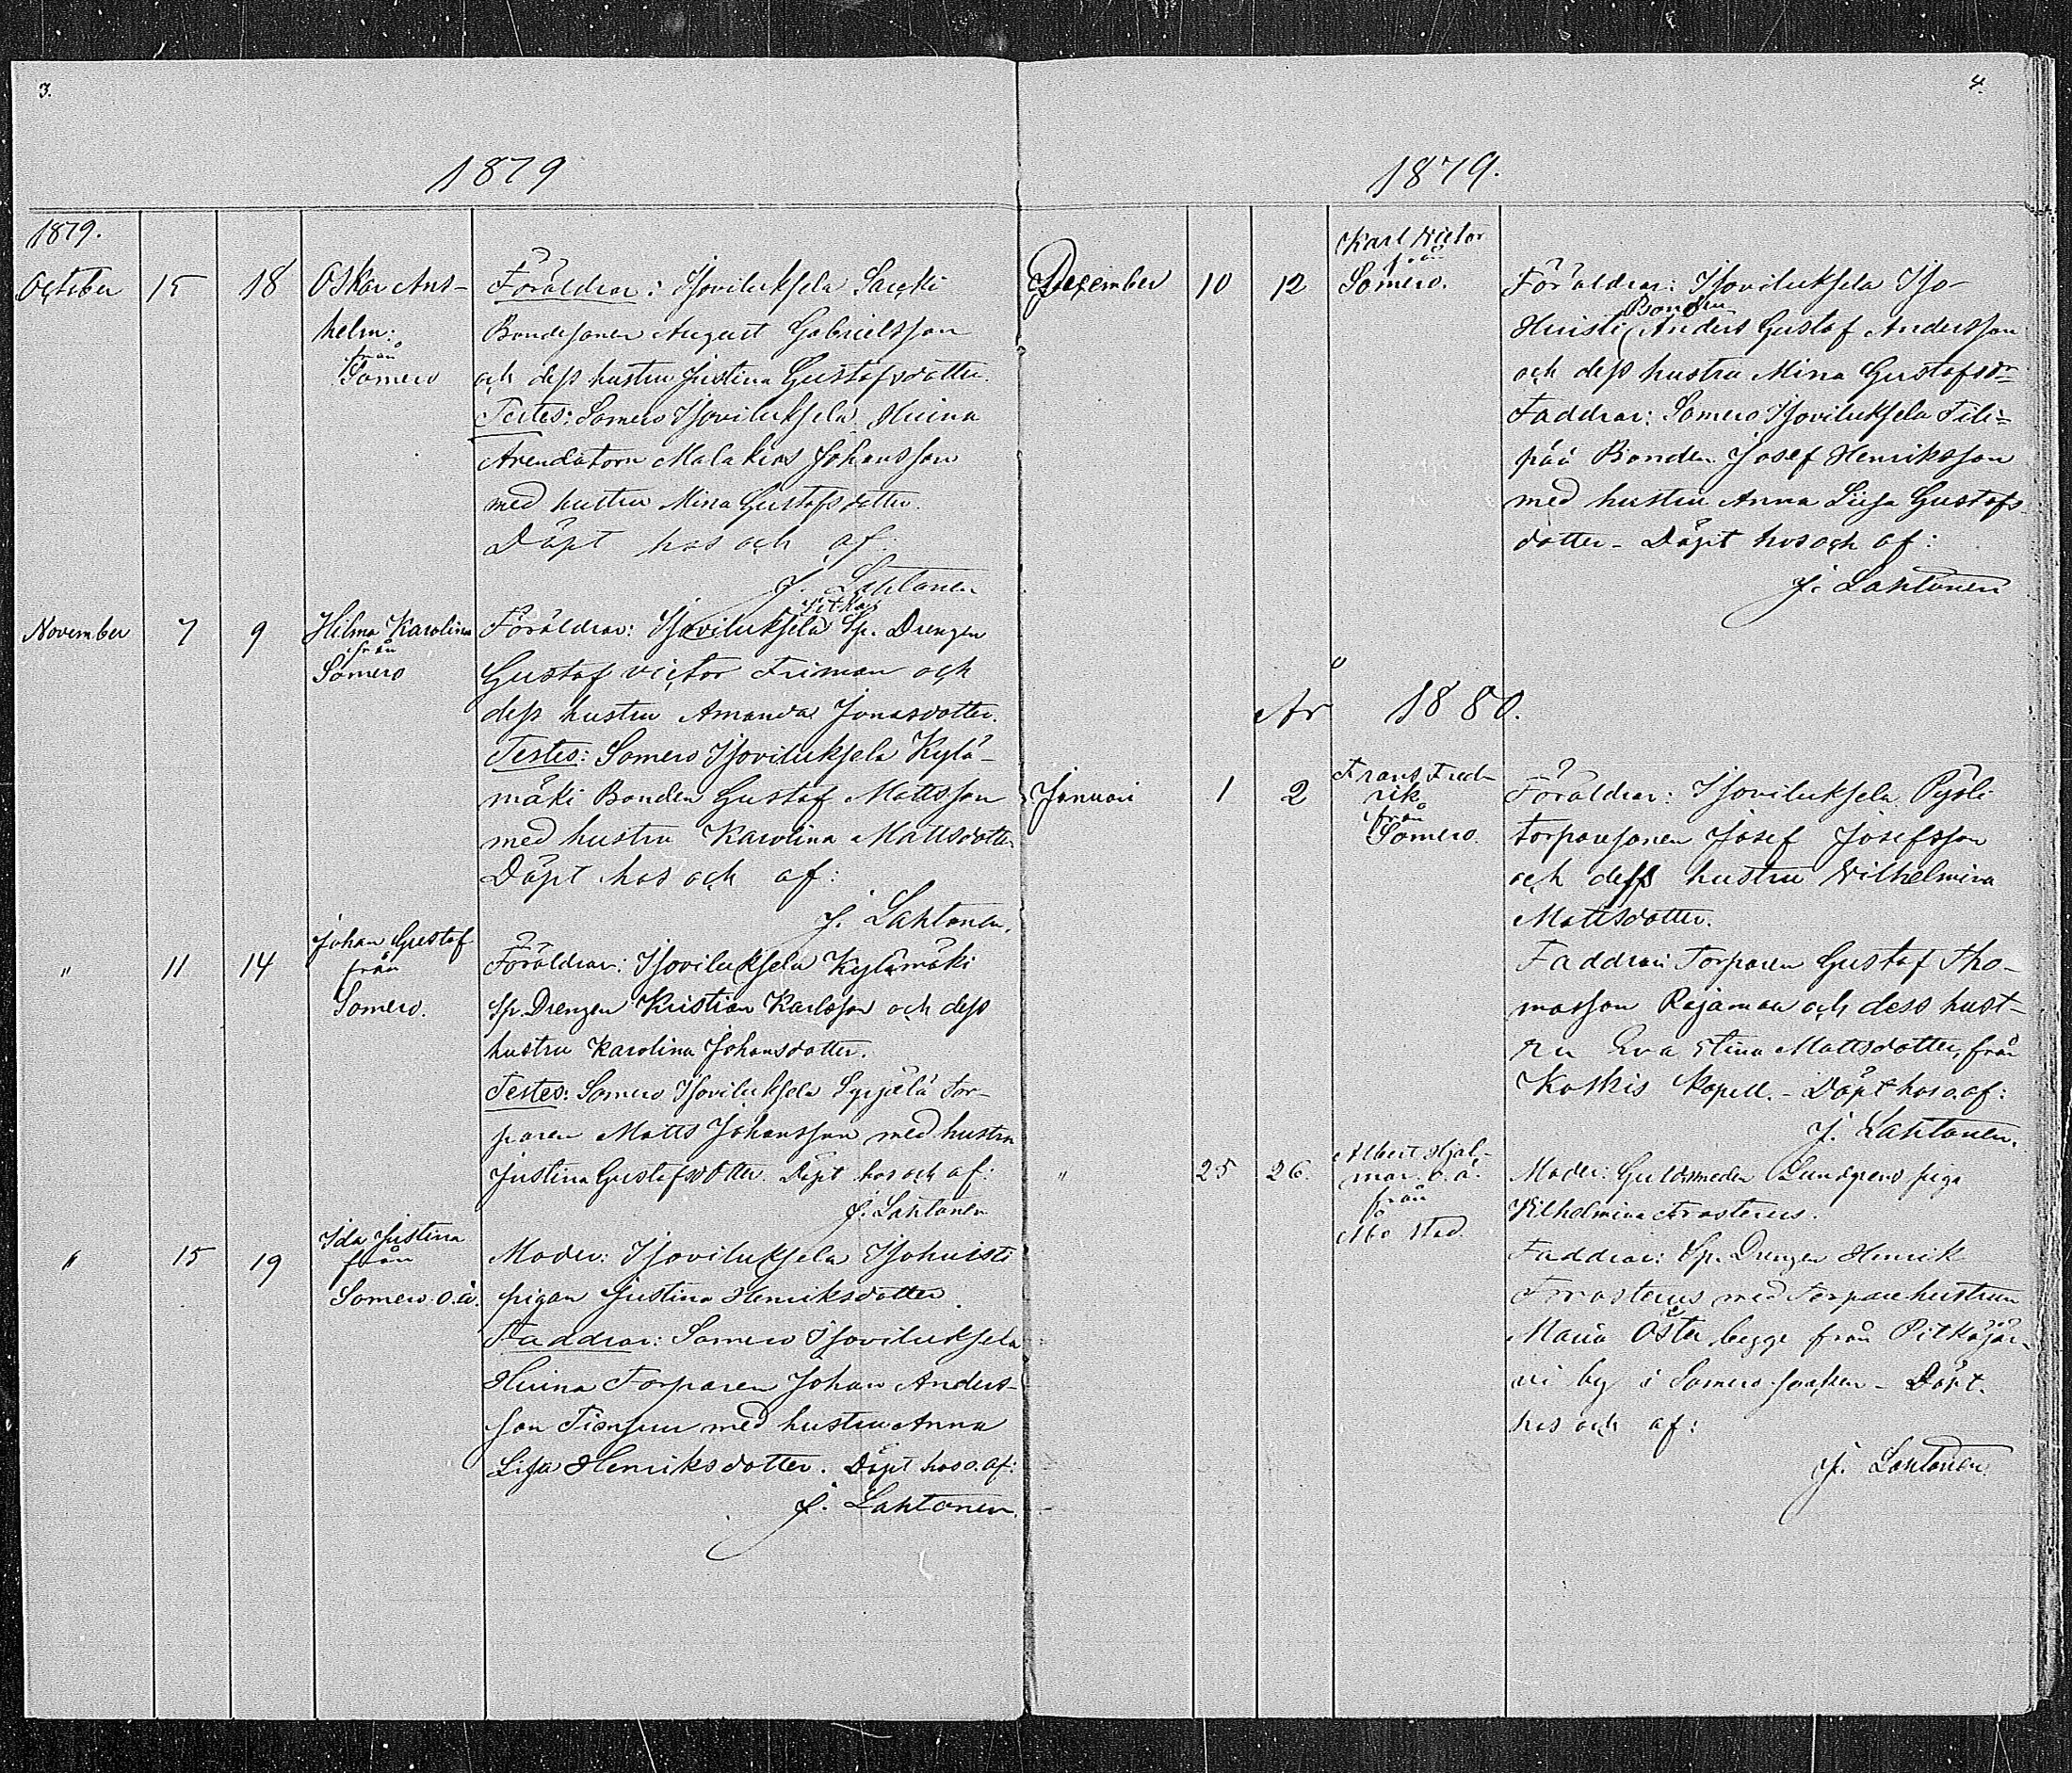 3.
1879
1879.
October 15 18 Oskar Ans-
helm:
från
Somero
Föräldrar: Isoviluksela Sacki
Bondesonen August Gabrielsson
och dess hustru Justina Gustafsdotter.
Testes: Somero Isoviluksela Huina
Arendatorn Malakias Johansson
med hustru Mina Gustafsdotter.
Döpt hos och af:
J. Lahtonen
November 7 9 Hilma Karolina
från
Somero
Föräldrar: Isoviluksela Pitkäs Sp. Drengen
Gustaf Victor Friman och
dess hustru Amanda Jonasdotter.
Testes: Somero Isoviluksela Kylä-
mäki Bonden Gustaf Mattsson
med hustru Karolina Mattsdotter
Döpt hos och af:
J. Lahtonen.
" 11 14 Johan Gustaf
från
Somero.
Föräldrar: Isoviluksela Kylämäki
Sp. Drengen Kristian Karlsson och dess
hustru Karolina Johansdotter.
Testes: Somero Isoviluksela Syrjälä Tor-
paren Matts Johansson med hustru
Justina Gustafsdotter. Döpt hos och af:
J. Lahtonen
" 15 19 Ida Justina
från
Somero o.ä.
Moder: Isoviluksela Isohuisti
pigan Justina Henriksdotter.
Faddrar: Somero Isoviluksela
Huina Torparen Johan Anders-
son Tiensuu med hustru Anna
Lisa Henriksdotter. Döpt hos o. af:
J. Lahtonen.
4.
1879.
December 10 12 Karl Victor
från
Somero.
Föräldrar: Isoviluksela Iso-
Huisti Bonden Anders Gustaf Andersson
och dess hustru Mina Gustafsdr
Faddrar: Somero Isoviluksela Fili-
pää Bonden Josef Henriksson
med hustru Anna Liisa Gustafs-
dotter - Döpt hos och af:
J. Lahtonen
År 1880.
Januari 1 2 Frans Fred-
rik
från
Somero.
Föräldrar: Isoviluksela Pyöli
torparesonen Josef Josefsson
och dess hustru Wilhelmina
Mattsdotter.
Faddrar: Torparen Gustaf Tho-
masson Rajamaa och dess hust-
ru Eva Stina Mattsdotter, från
Koskis Kapell. - Döpt hos o. af:
J. Lahtonen.
" 25 26. Albert Hjal-
mar o.ä.
från
Åbo stad.
Moder: Guldsmeden Lundgrens piga
Wilhelmina Frosterus.
Faddrar: Sp. Drengen Henrik
Frosterus med Torparehustrun
Maria Öster begge från Pitkäjär-
vi by i Somero socken - Döpt.
hos och af:
J. Lahtonen.